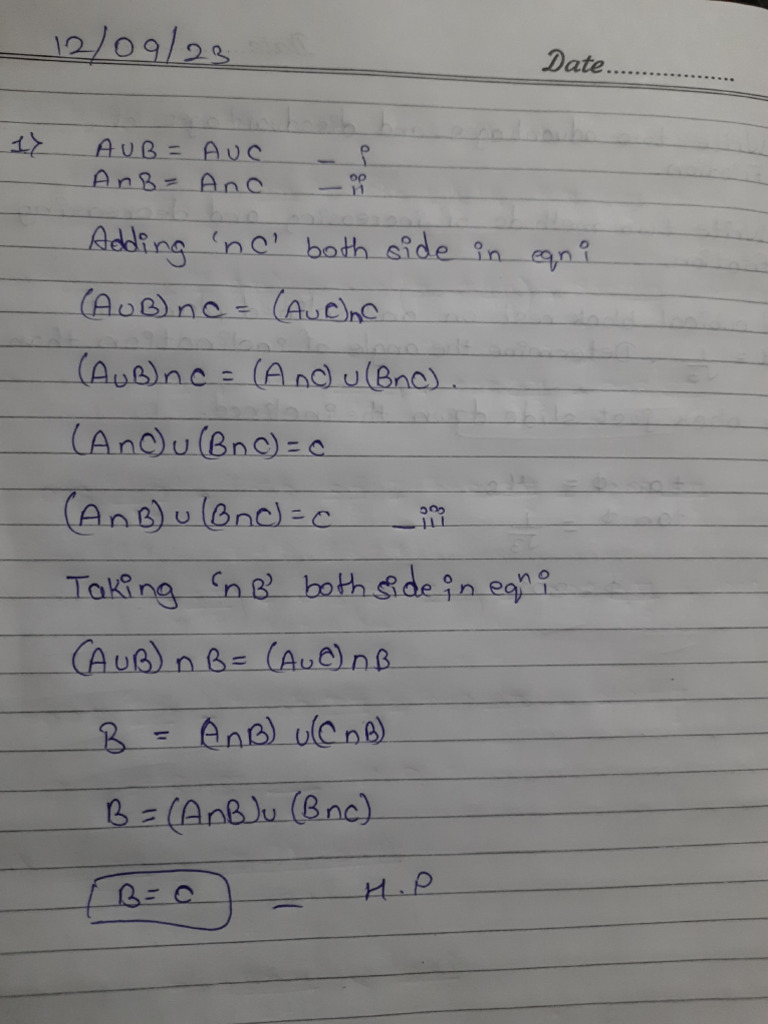 12/09/23
Date..................
1) A∪B = A∪C — i
A∩B = A∩C — ii
Adding '∩C' both side in eqn i
(A∪B)∩C = (A∪C)∩C
(A∪B)∩C = (A∩C)∪(B∩C).
(A∩C)∪(B∩C) = C
(A∩B)∪(B∩C) = C — iii
Taking '∩B' both side in eqⁿ i
(A∪B)∩B = (A∪C)∩B
B = (A∩B) ∪(C∩B)
B = (A∩B)∪ (B∩C)
B = C — H.P